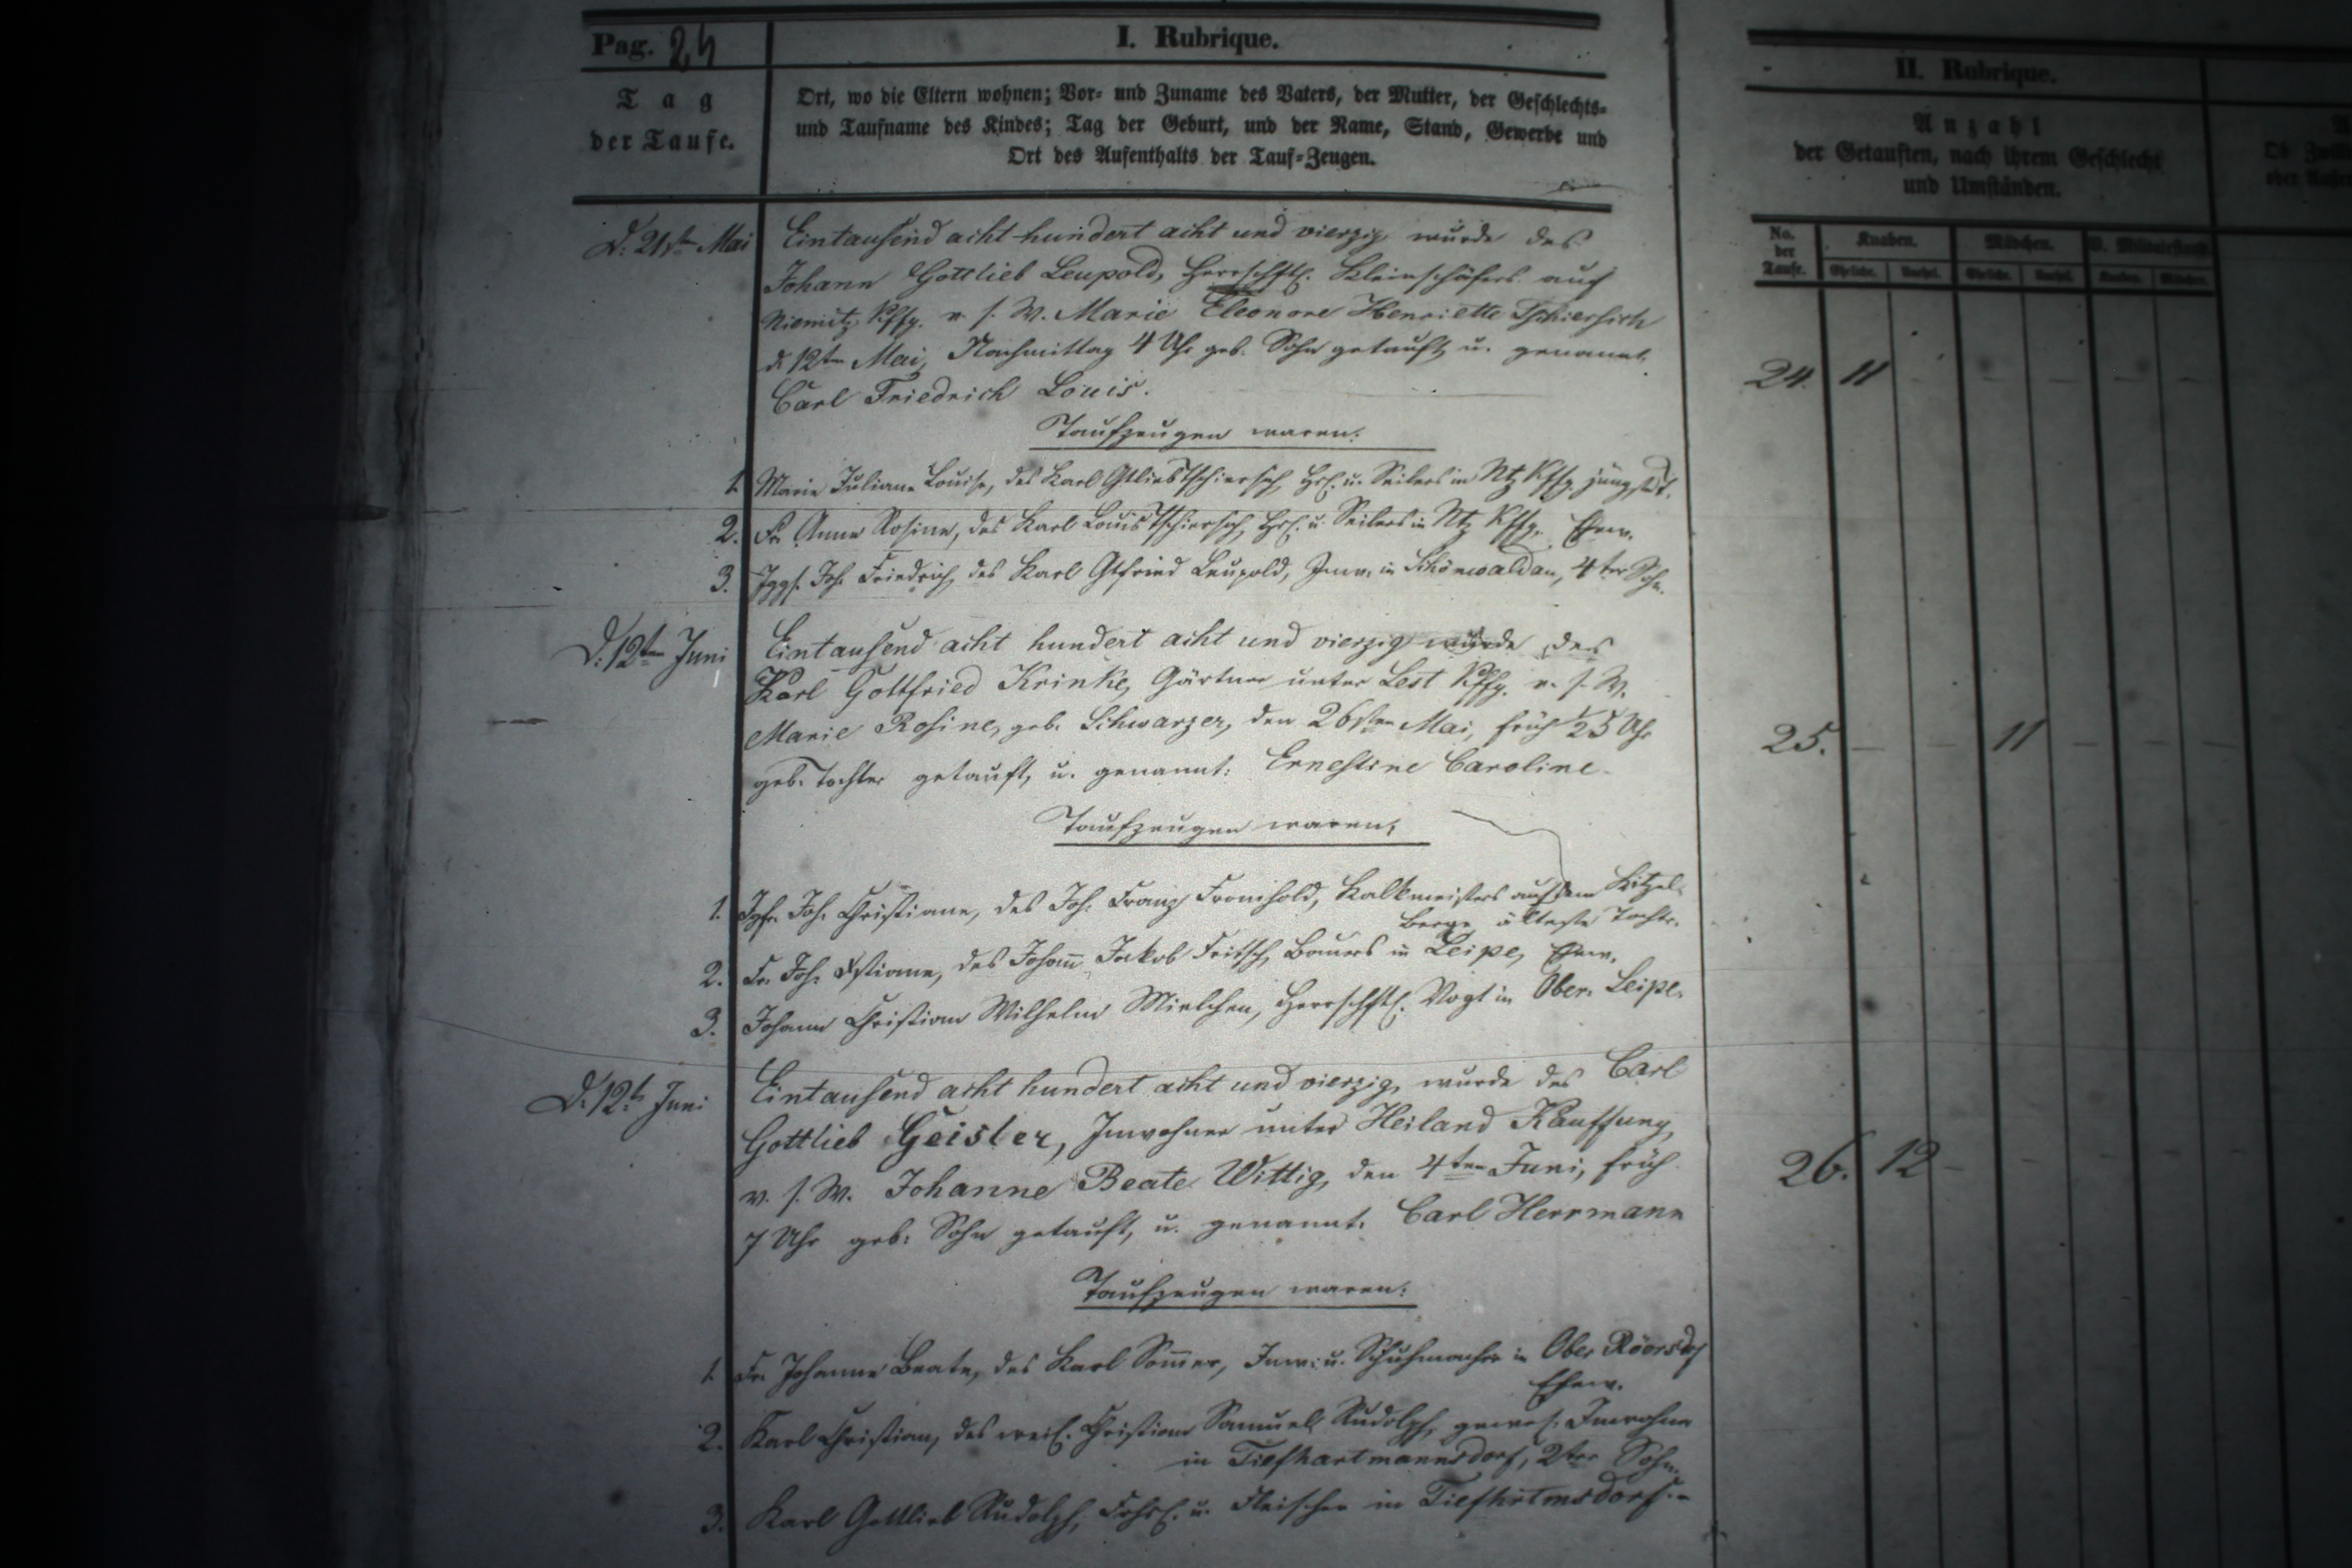 Pag. 24
I. Rubrique.
Tag
der Taufe.
Ort, wo die Eltern wohnen; Vor- und Zuname des Vaters, der Mutter, der Geschlechts-
und Taufname des Kindes; Tag der Geburt, und der Name, Stand, Gewerbe und
Ort des Aufenthalts der Tauf-Zeugen.
II. Rubrique.
Anzahl
der Getauften, nach ihrem Geschlecht
und Umständen.
No. der Taufe.
Knaben. Mädchen.
Eheliche. Unehel. Eheliche. Unehel. Knaben. Mädchen.
D. 21st Mai Eintausend acht hundert acht und vierzig wurde des
Johann Gottlieb Leupold, Herrschftl. Kleinschäfers auf
Niemitz Kffg. v. s. W. Marie Eleonore Henriette Tschiersich
d. 12ten Mai, Nachmittag 4 Uhr geb. Sohn getauft, u. genannt.
Carl Friedrich Louis.
24. 11
Taufzeugen waren:
1. Marie Juliane Louise, des Karl Gtlieb Tschiersch, Hsl. u. Seilers in Ntz Kffg. jüngste T.
2. Fr. Anna Rosine, des Karl Louis Tschiersch, Hsl. u. Seilers in Ntz Kffg. Ehew.
3. Jggs. Joh. Friedrich, des Karl Gtfried Leupold, Inw. in Schönwaldau, 4ter Sohn.
D. 12ten Juni Eintausend acht hundert acht und vierzig wurde des
Karl Gottfried Krinke, Gärtner unter Lest Kffg. v. s. W.
Marie Rosine, geb. Schwarzer, den 26sten Mai, früh 1/25 Uhr
geb. Tochter getauft, u. genannt: Ernestine Caroline.
25. 11
Taufzeugen waren:
1. Jgfr. Joh. Christiane, des Joh. Franz Fromhold, Kalkmeisters auf dem Kitzel-
berge älteste Tochter.
2. Fr. Joh. Xstiane, des Johann Jakob Fritsch, Bauers in Leipe, Ehew.
3. Johann Christian Wilhelm Mielchen, Herrschftl. Vogt in Ober-Leipe.
D. 12t. Juni Eintausend acht hundert acht und vierzig, wurde des Carl
Gottlieb Geisler, Inwohner unter Heiland Kauffung,
v. s. W. Johanne Beate Wittig, den 4ten Juni, früh
7 Uhr geb. Sohn getauft, u. genannt. Carl Herrmann
26. 12
Taufzeugen waren:
1. Fr. Johanne Beate, des Karl Sommer, Inw. u. Schuhmacher in Ober Röversdf
Ehew.
2. Karl Christian, des weil. Christian Samuel Rudolph, gewes. Inwohner
in Tiefhartmannsdorf, 2ter Sohn.
3. Karl Gottlieb Rudolph, u. Fleischer in Tiefhrtmsdorf.